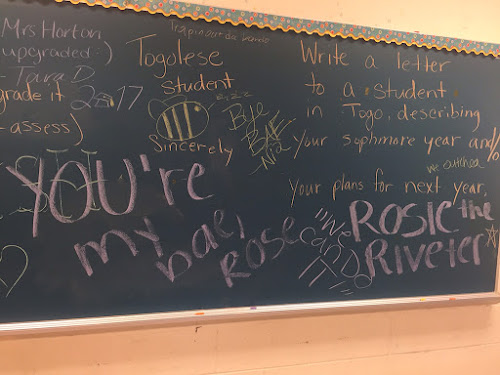 Mrs Horton
upgraded :)
- Tara D.
grade it 2017
- assess)
Togolese
Student
Sincerely
Bye
BAE
- Nia
Write a letter
to a student
in Togo, describing
your sophmore year and/
we outchea
your plans for next year.
You're
my bae,
Rose
"We
CAN DO
IT"
ROSIE the
RIVETER